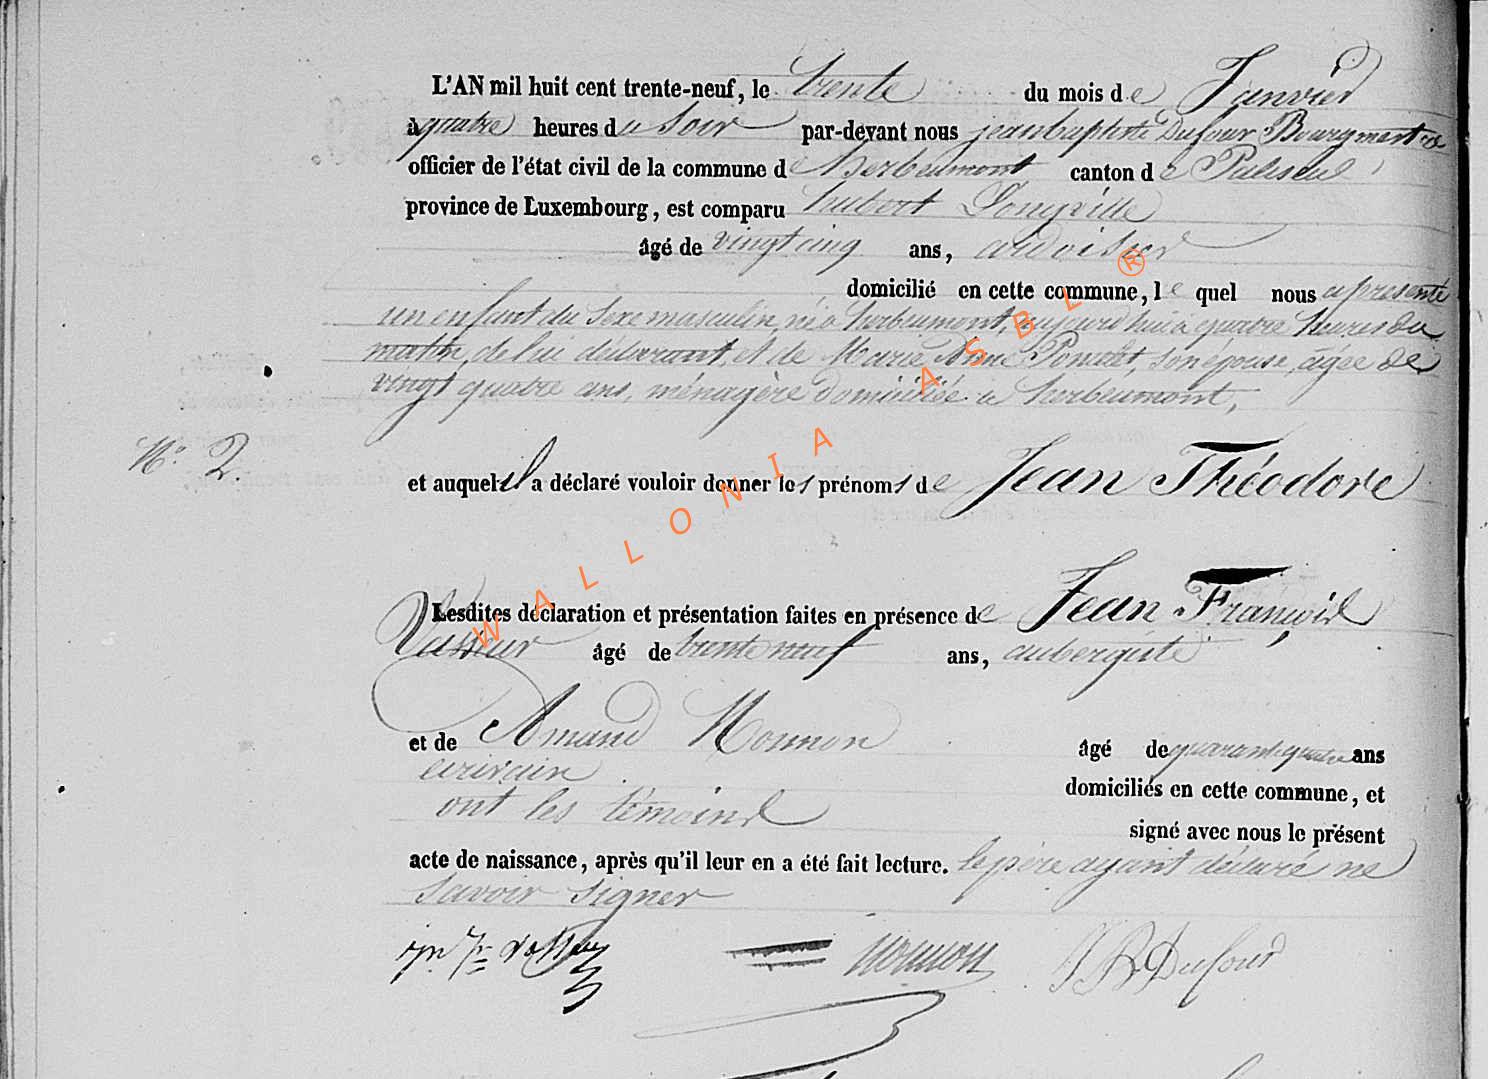 L'AN mil huit cent trente-neuf, le trente du mois de Janvier
à quatre heures du soir par-devant nous jeanbaptiste Dufour Bourgmestre
officier de l'état civil de la commune de herbeumont canton de Paliseul
province de Luxembourg, est comparu hubert Longville
âgé de vingt cinq ans, ardoisier
domicilié en cette commune, le quel nous a présenté
un enfant du sexe masculin, né à herbeumont, aujourd'hui à quatre heures du
matin, de lui déclarant, et de Marie Anne Poncelet, son épouse, agée de
vingt quatre ans, ménagère domiciliée à herbeumont,
No. 2.
et auquel il a déclaré vouloir donner les prénoms de Jean Théodore
Lesdites déclaration et présentation faites en présence de Jean François
Vasseur âgé de trente neuf ans, aubergiste
et de Amand Monnon âgé de quarante quatre ans
écrivain
domiciliés en cette commune, et
ont les témoins
signé avec nous le présent
acte de naissance, après qu'il leur en a été fait lecture. le père ayant déclaré ne
savoir signer
monnon JB Dufour
WALLONIA ASBL ®